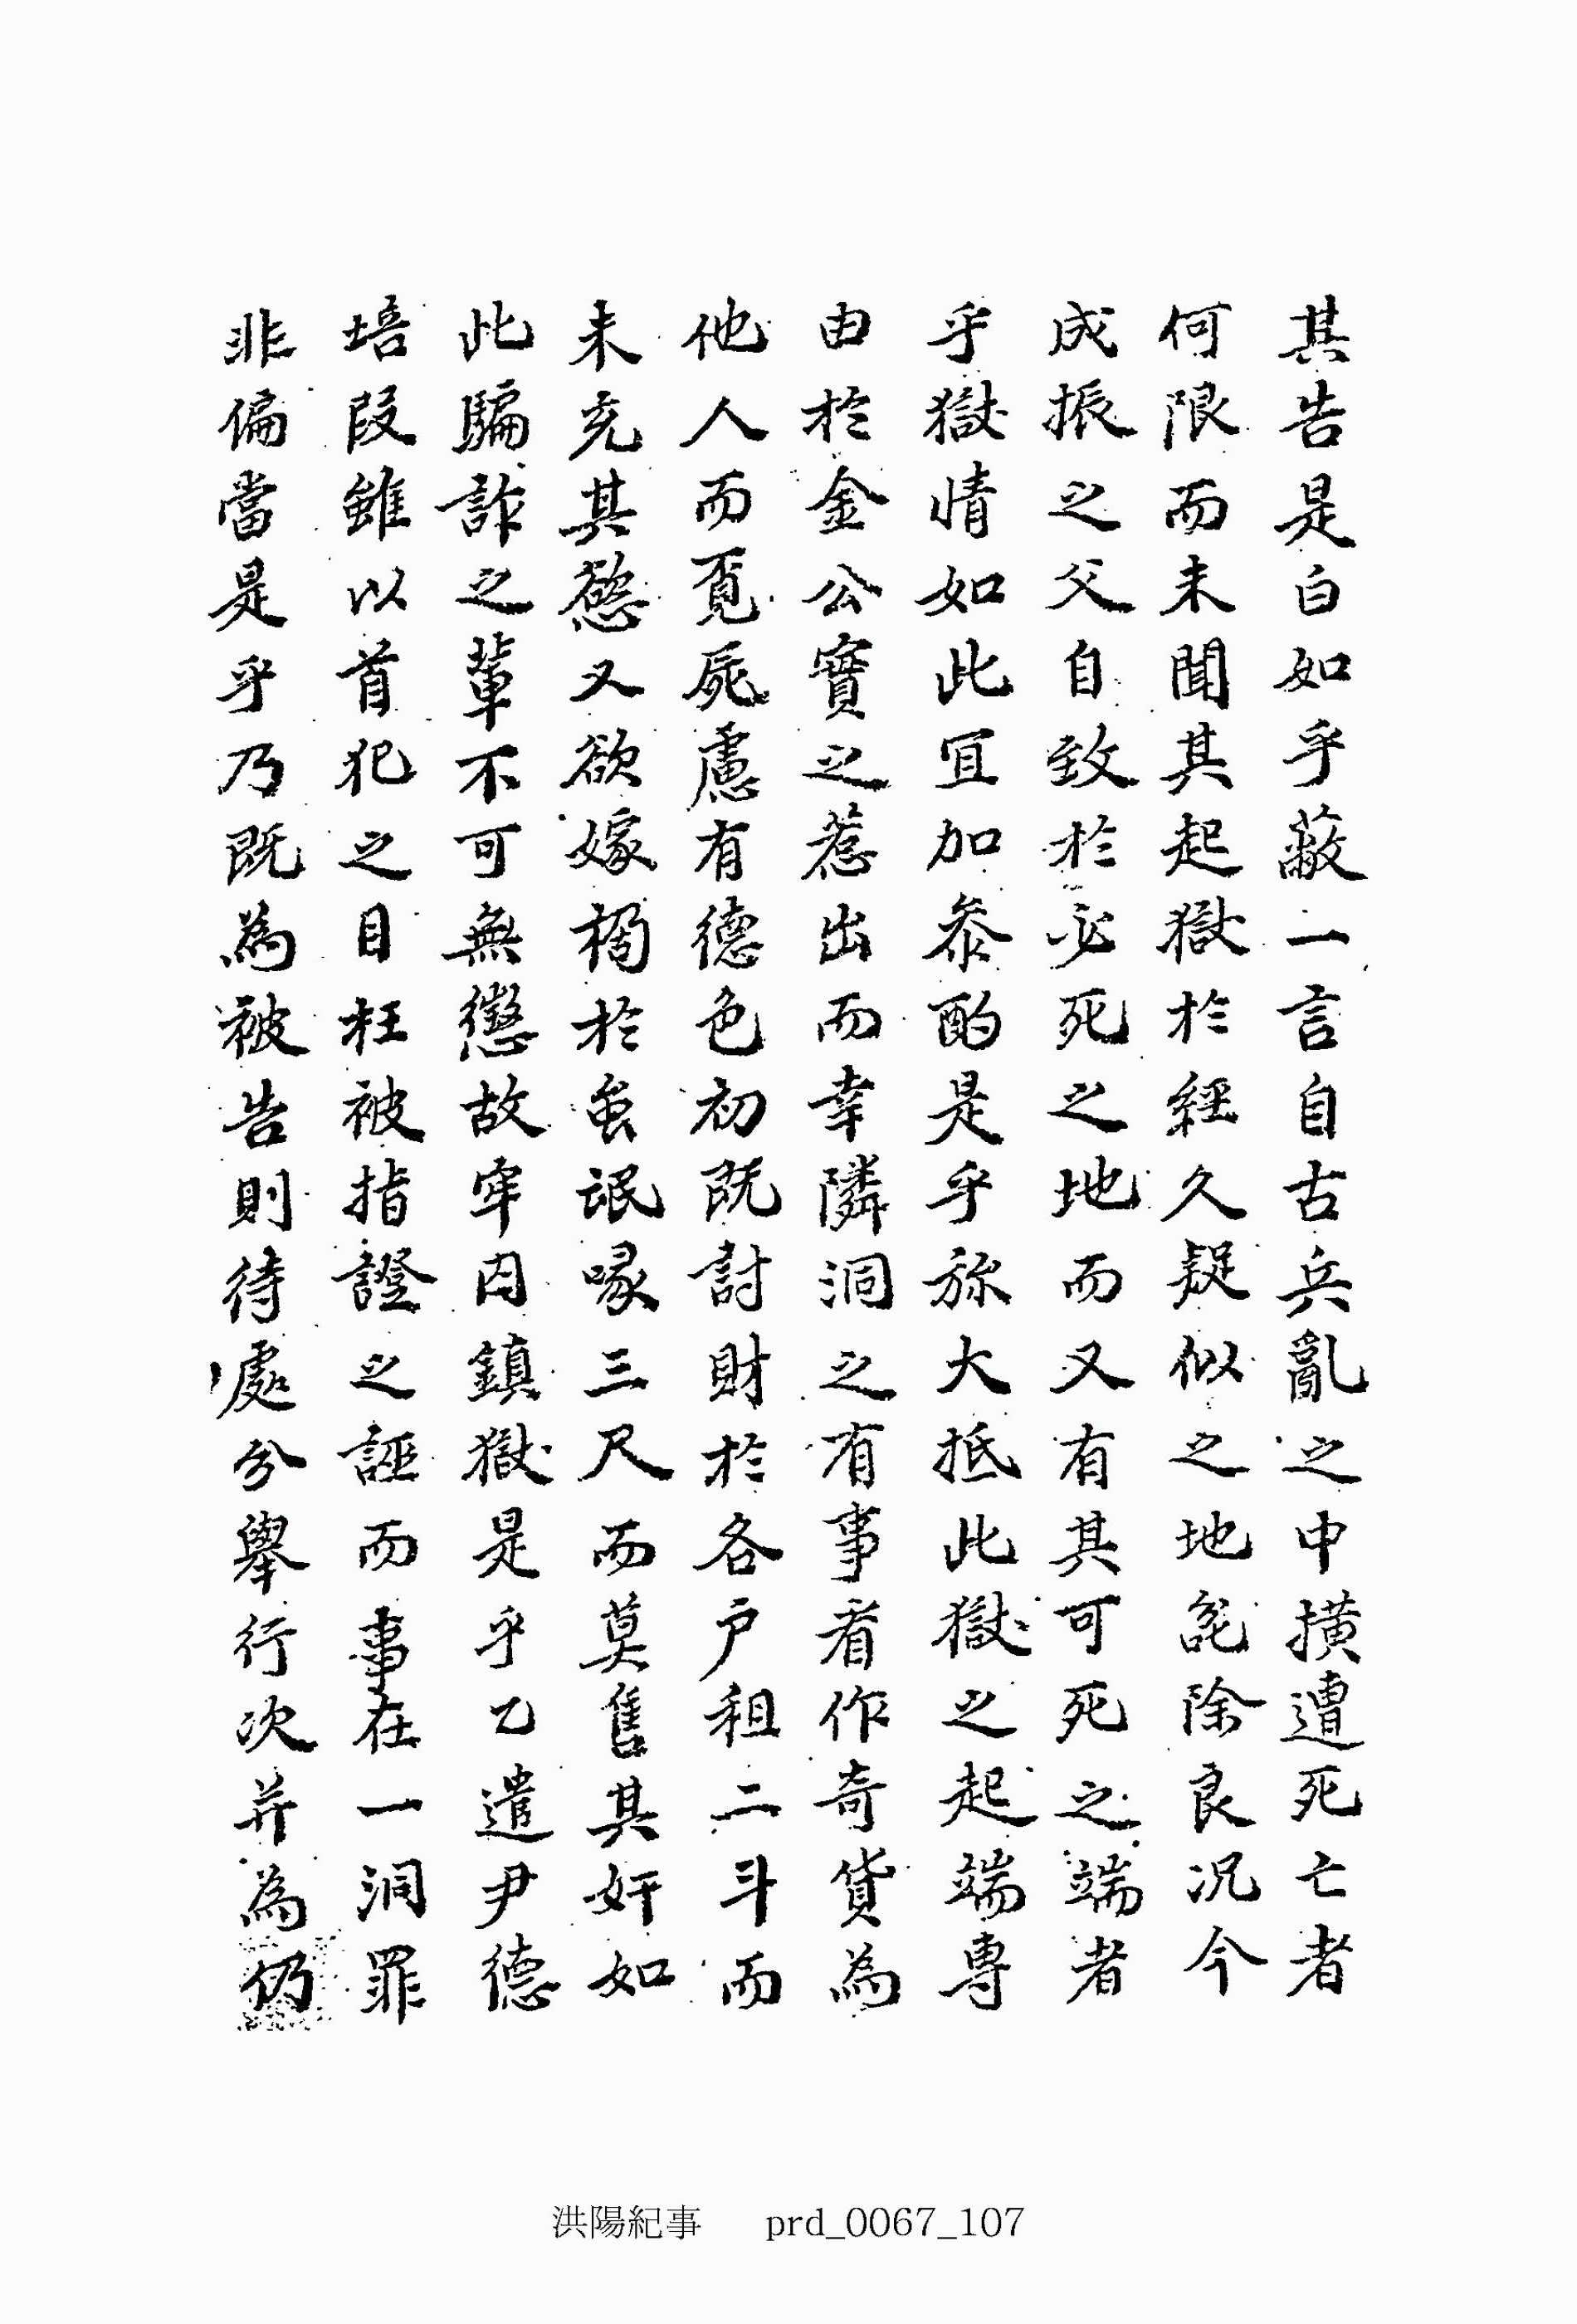 其告是白如乎蔽一言自古兵亂之中橫遭死亡者
何限而未聞其起獄於經久疑似之地訖除良况今
成振之父自致於必死之地而又有其可死之端者
乎獄情如此宜加叅酌是乎旀大抵此獄之起端專
由於金公實之惹出而幸隣洞之有事看作奇貨為
他人而覓屍慮有德色初既討財於各户租二斗而
未充其慾又欲嫁禍於蚩氓喙三尺而莫售其奸如
此騙詐之輩不可無懲故牢囚鎮獄是乎乙遣尹德
培段雖以首犯之目枉被指證之誣而事在一洞罪
非偏當是乎乃既為被告則待處分舉行次并為仍
洪陽紀事 prd_0067_107